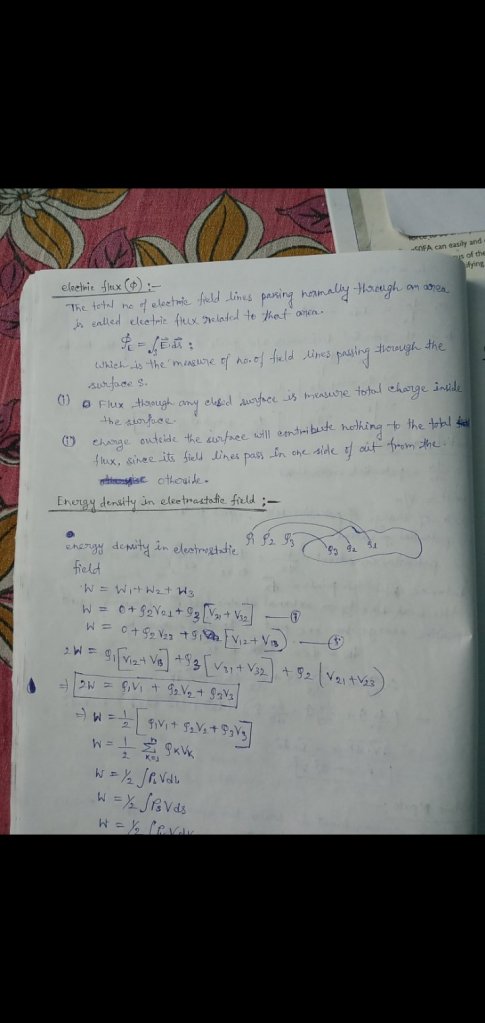 SOFA can easily and
us of the
electric flux (Φ) :-
The total no of electric field lines passing normally through an area
is called electric flux related to that area.
Φ_E = ∫_S E⃗.ds⃗ ;
which is the measure of no. of field lines passing through the
surface S.
(i) Flux through any closed surface is measure total charge inside
the surface.
(ii) charge outside the surface will contribute nothing to the total
flux, since its field lines pass in one side of out from the
otherside.
Energy density in electrostatic field :-
energy density in electrostatic
field
q1 q2 q3
q3 q2 q1
W = W1 + W2 + W3
W = 0 + q2V21 + q3 [V31 + V32]
W = 0 + q2V23 + q1 [V12 + V13]
2W = q1 [V12 + V13] + q3 [V31 + V32] + q2 [V21 + V23]
⇒ 2W = q1V1 + q2V2 + q3V3
⇒ W = 1/2 [q1V1 + q2V2 + q3V3]
W = 1/2 Σ qKVK
W = 1/2 ∫ρL V dL
W = 1/2 ∫ρS V ds
W = 1/2 ∫ρv V dv